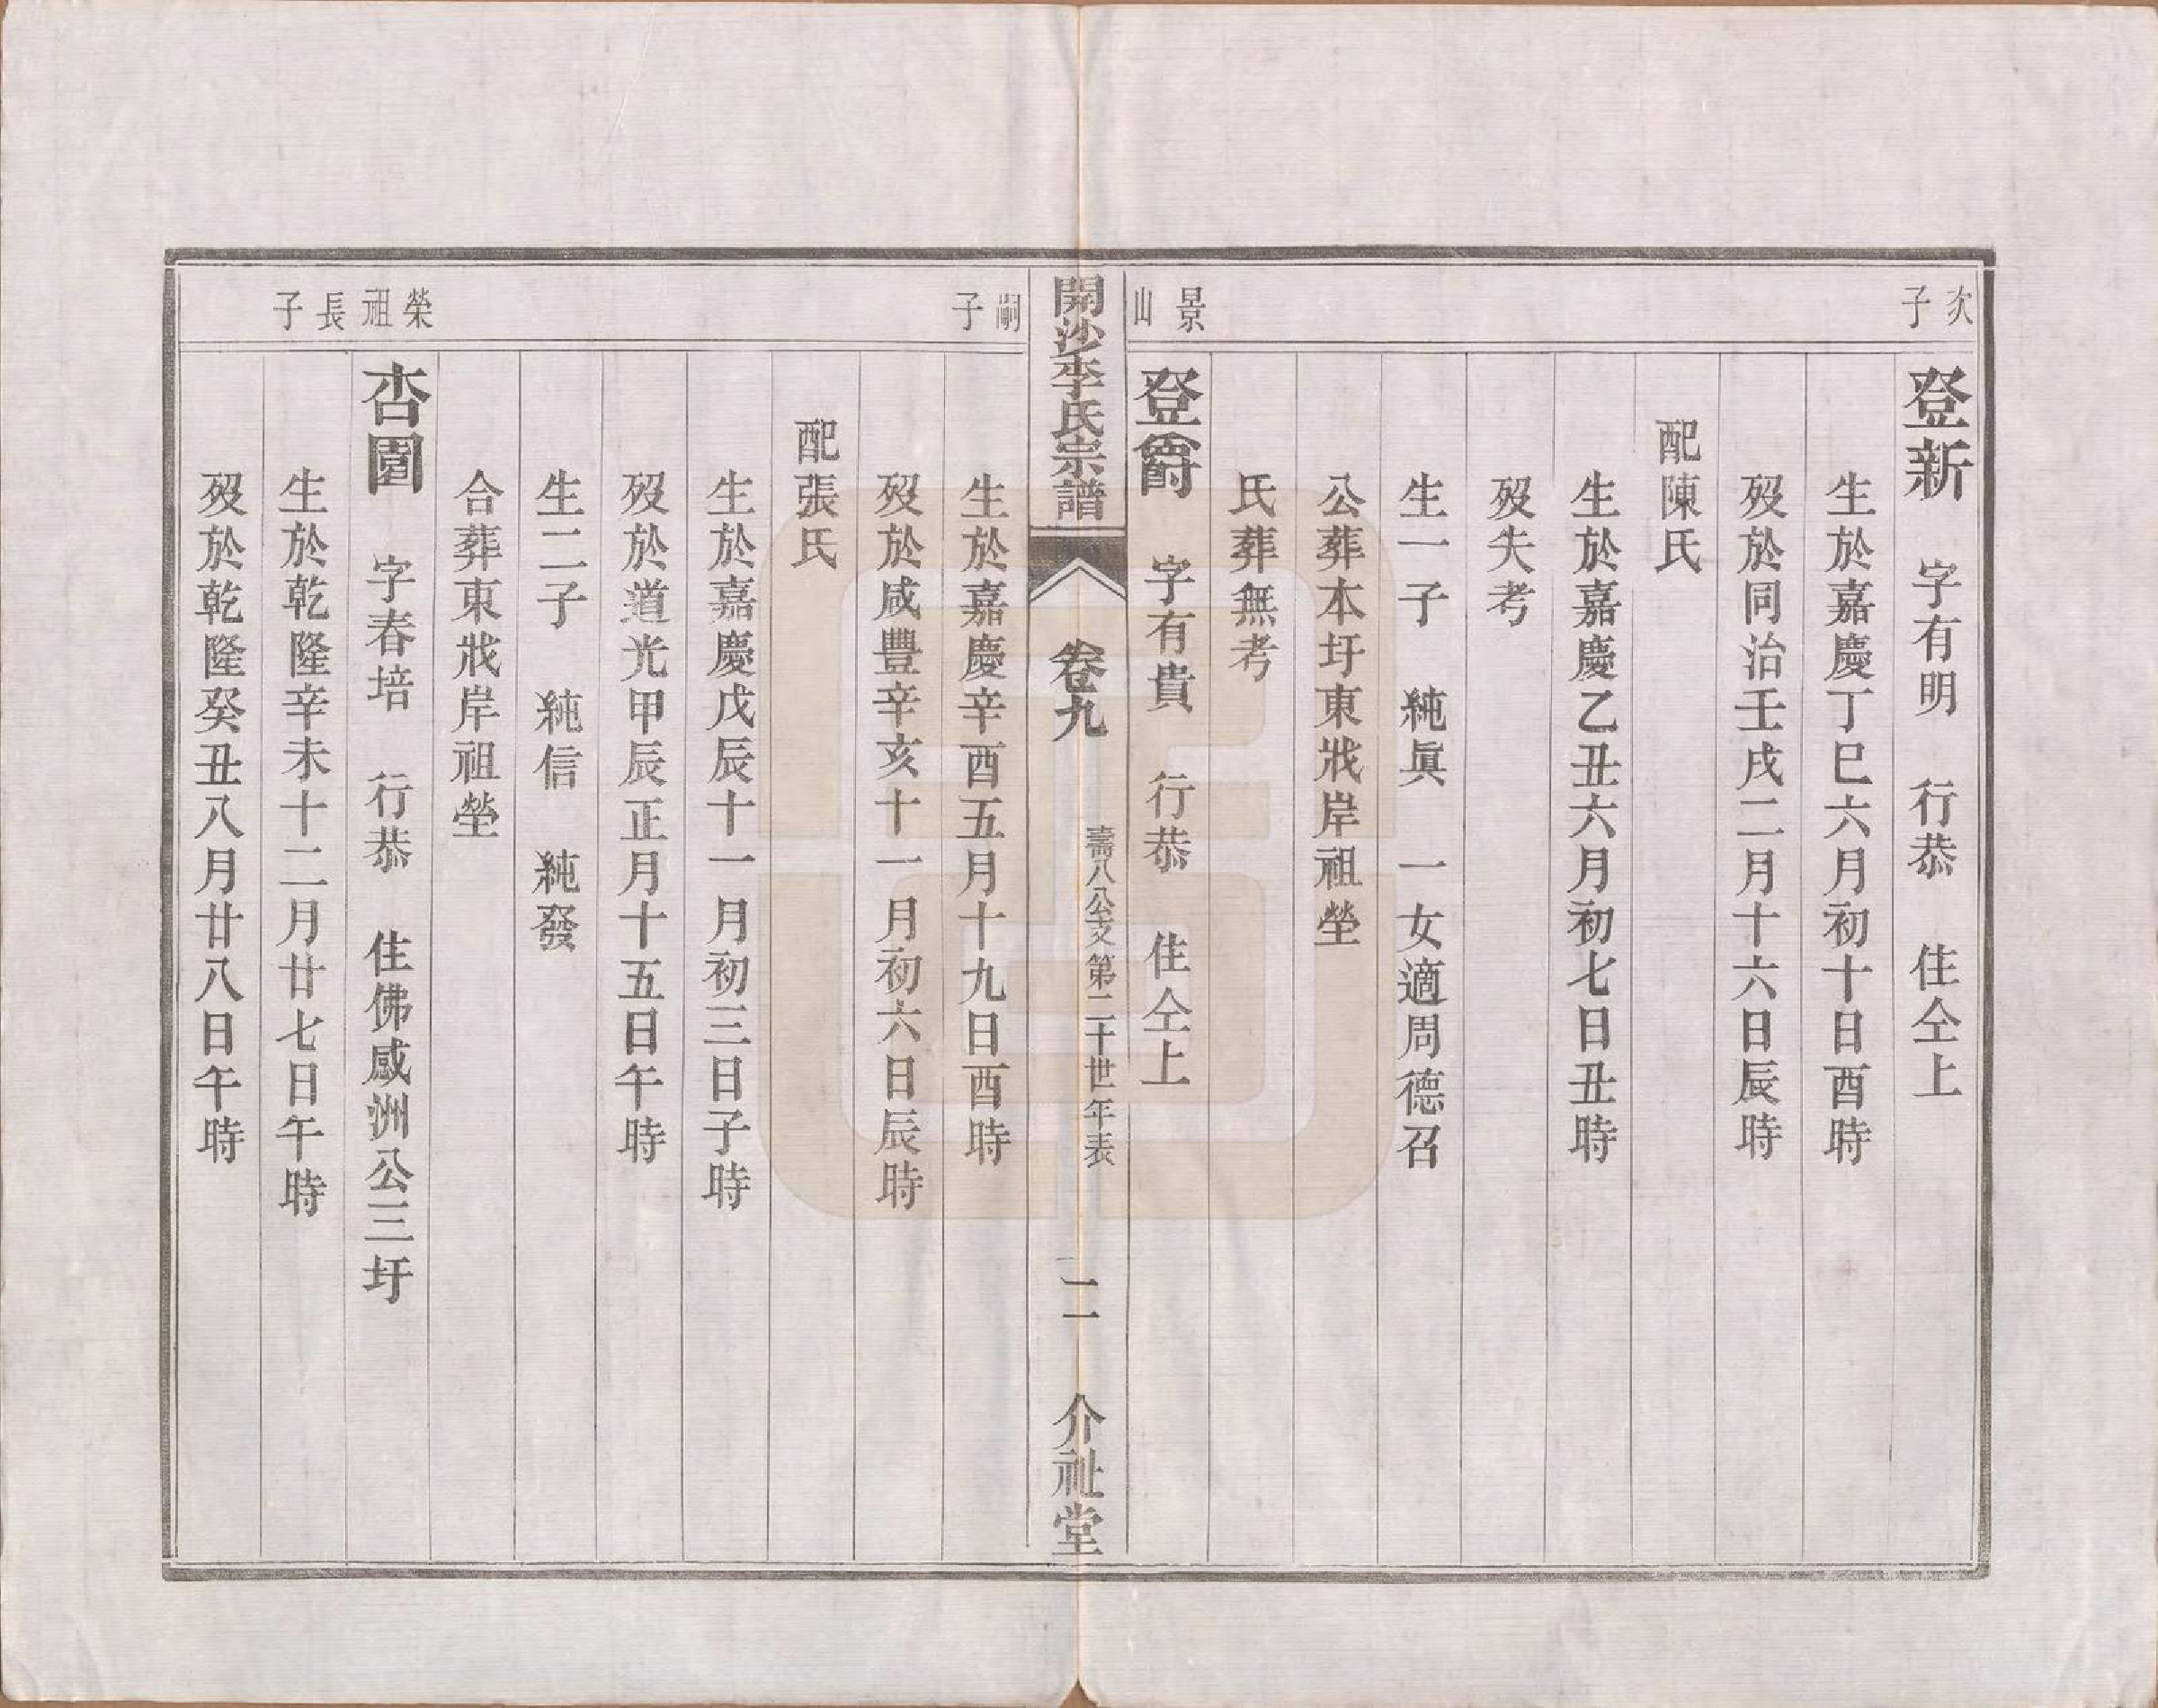 次子
登新 字有明 行恭 住仝上
生於嘉慶丁巳六月初十日酉時
歿於同治壬戌二月十六日辰時
配陳氏
生於嘉慶乙丑六月初七日丑時
歿失考
生一子 純眞 一女適周德召
公葬本圩東戕岸祖塋
氏葬無考
景山
登爵 字有貴 行恭 住仝上
開沙李氏宗譜 卷九 壽八公支第二十世年表 二一 介祉堂
嗣子
生於嘉慶辛酉五月十九日酉時
歿於咸豐辛亥十一月初六日辰時
配張氏
生於嘉慶戊辰十一月初三日子時
歿於道光甲辰正月十五日午時
生二子 純信 純發
合葬東戕岸祖塋
榮祖長子
杏園 字春培 行恭 住佛感洲公三圩
生於乾隆辛未十二月廿七日午時
歿於乾隆癸丑八月廿八日午時